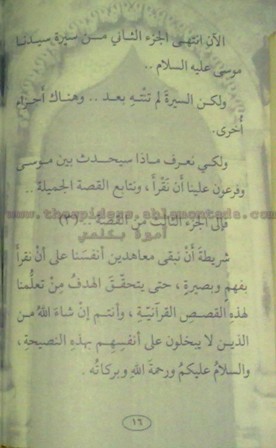 الآن انتهى الجزء الثاني من سيرة سيدنا
موسى عليه السلام ..
ولكن السيرة لم تنته بعد .. وهناك أجزاء
أخرى.
ولكي نعرف ماذا سيحدث بين موسى
وفرعون علينا أن نقرأ ، ونتابع القصة الجميلة ..
فإلى الجزء الثالث من القصة .. (٣)
شريطة أن نبقى معاهدين أنفسنا على أن نقرأ
بفهم وبصيرة ، حتى يتحقق الهدف من تعلمنا
لهذه القصص القرآنية ، وأنتم إن شاء الله من
الذين لا يبخلون على أنفسهم بهذه النصيحة ،
والسلام عليكم ورحمة الله وبركاته .
١٦